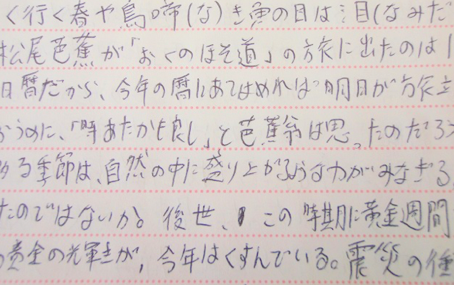 く行く春や鳥の啼(な)き魚の目は泪(なみだ
松尾芭蕉が「おくのほそ道」の旅に出たのは1
日暦だから、今年の暦にあてはめれば明日が旅立
ように、「時あたかも良し」と芭蕉翁は思ったのだろう
る季節は、自然の中に盛り上がるような力がみなぎる
たのではないか。後世、この時期に黄金週間
黄金の光輝きが、今年はくすんでいる。震災の